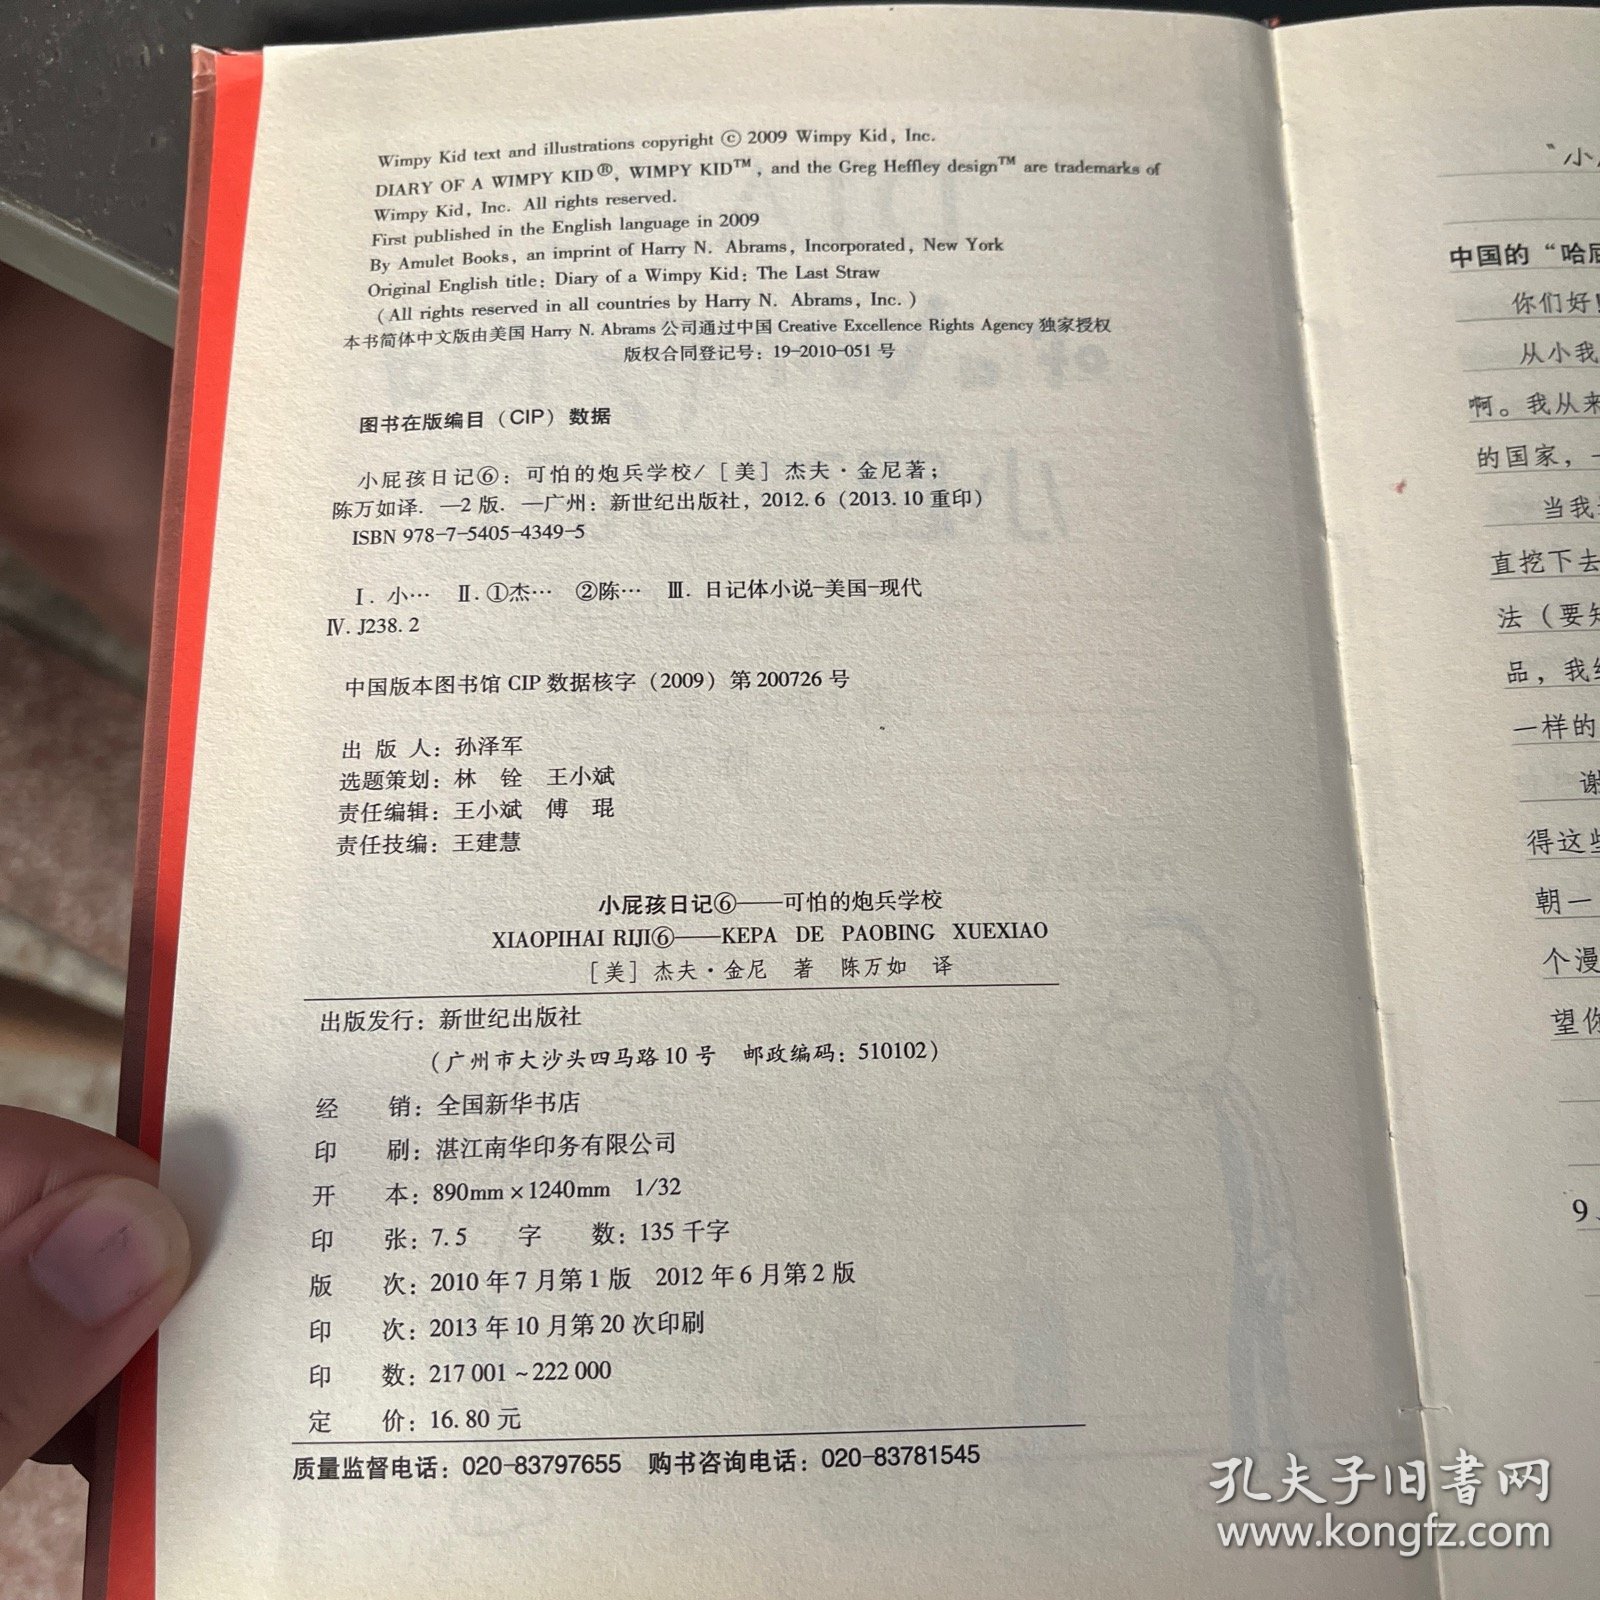 Wimpy Kid text and illustrations copyright ⓒ 2009 Wimpy Kid, Inc.
DIARY OF A WIMPY KID®, WIMPY KID™, and the Greg Heffley design™ are trademarks of
Wimpy Kid, Inc. All rights reserved.
First published in the English language in 2009
By Amulet Books, an imprint of Harry N. Abrams, Incorporated, New York
Original English title: Diary of a Wimpy Kid: The Last Straw
(All rights reserved in all countries by Harry N. Abrams, Inc.)
本书简体中文版由美国 Harry N. Abrams 公司通过中国 Creative Excellence Rights Agency 独家授权
版权合同登记号：19-2010-051 号
图书在版编目（CIP）数据
小屁孩日记⑥：可怕的炮兵学校/［美］杰夫·金尼著；
陈万如译. —2 版. —广州：新世纪出版社，2012.6（2013.10 重印）
ISBN 978-7-5405-4349-5
Ⅰ. 小… Ⅱ. ①杰… ②陈… Ⅲ. 日记体小说-美国-现代
Ⅳ. J238.2
中国版本图书馆 CIP 数据核字（2009）第 200726 号
出 版 人：孙泽军
选题策划：林 铨 王小斌
责任编辑：王小斌 傅 琨
责任技编：王建慧
小屁孩日记⑥——可怕的炮兵学校
XIAOPIHAI RIJI⑥——KEPA DE PAOBING XUEXIAO
［美］杰夫·金尼 著 陈万如 译
出版发行：新世纪出版社
（广州市大沙头四马路 10 号 邮政编码：510102）
经 销：全国新华书店
印 刷：湛江南华印务有限公司
开 本：890mm×1240mm 1/32
印 张：7.5 字 数：135 千字
版 次：2010 年 7 月第 1 版 2012 年 6 月第 2 版
印 次：2013 年 10 月第 20 次印刷
印 数：217 001～222 000
定 价：16.80 元
质量监督电话：020-83797655 购书咨询电话：020-83781545
“小
中国的“哈屁
你们好！
从小我
啊。我从来
的国家，一
当我
直挖下去
法（要知
品，我
一样的
谢
得这些
朝一
个漫
望你
9、
孔夫子旧书网
www.kongfz.com